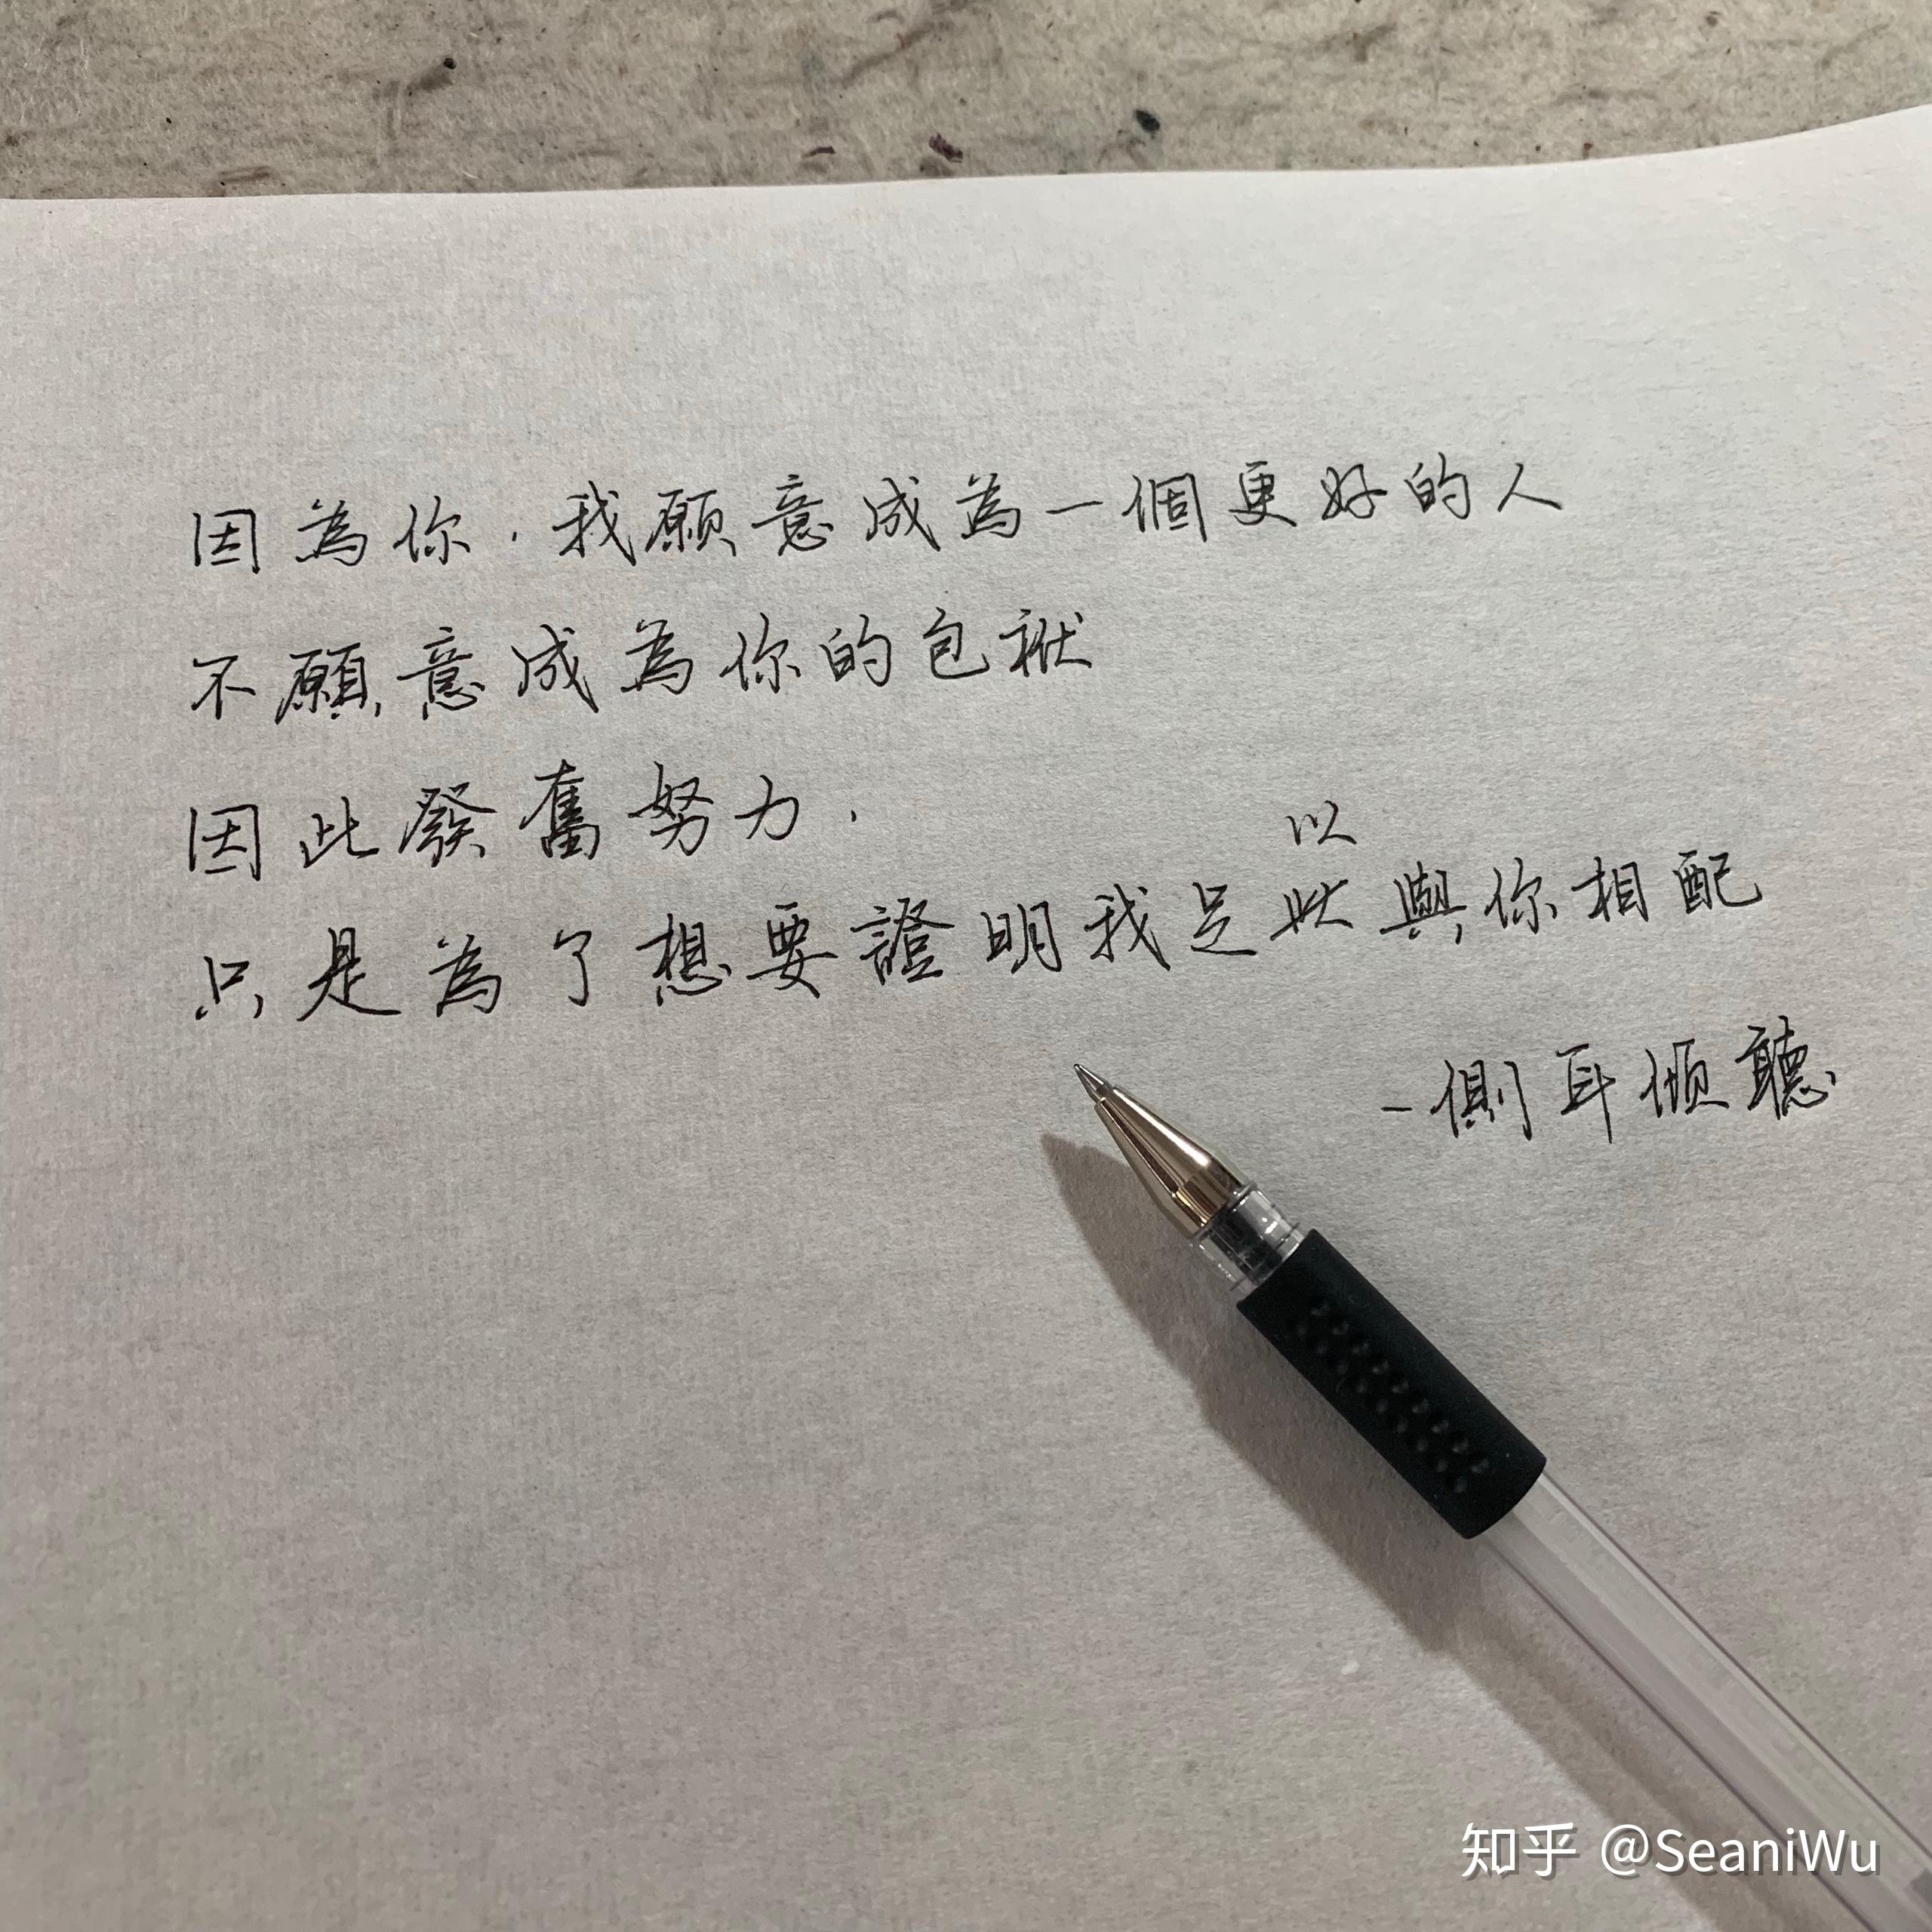 因為你，我願意成為一個更好的人
不願意成為你的包袱
因此發奮努力，
以
只是為了想要證明我足以與你相配
-側耳傾聽
知乎 @SeaniWu